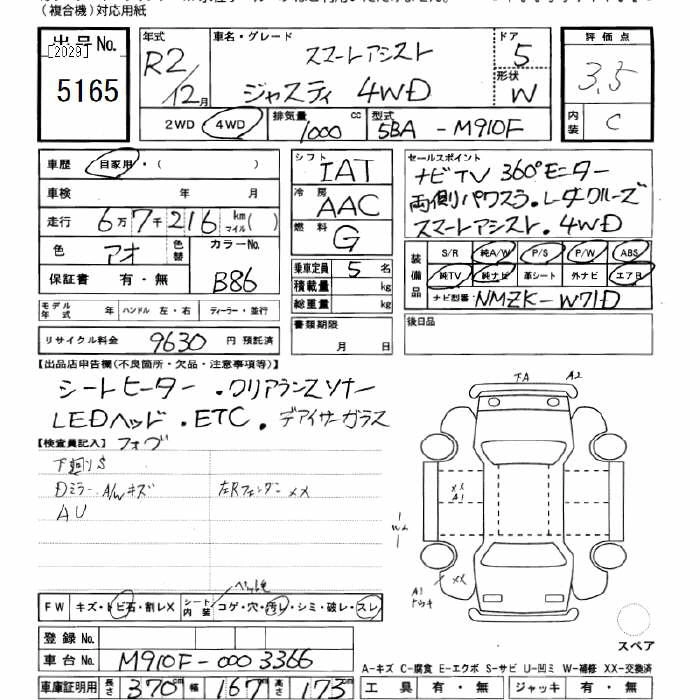 (複合機)対応用紙
出品No.
[2029]
5165
年式 車名・グレード ドア 評価点
R2/12月 スマートアシスト 5 3.5
ジャスティ 4WD 形状 W
2WD 4WD 排気量 1000 cc 型式 5BA - M910F 内装 C
車歴 自家用・( )
車検 年 月
走行 6万7千216 km マイル( )
色 アオ 色替 カラーNo. B86
保証書 有・無
モデル年式 年 ハンドル 左・右 ディーラー・並行
リサイクル料金 9630 円 預託済
シフト IAT
冷房 AAC
燃料 G
乗車定員 5 名
積載量 kg
総重量 kg
書類期限
月 日
セールスポイント
ナビTV 360°モニター
両側パワスラ.レーダクルーズ
スマートアシスト.4WD
装備品 S/R 純A/W P/S P/W ABS
純TV 純ナビ 革シート 外ナビ エアB
ナビ型番 NMZK-W71D
後日品
【出品店申告欄(不良箇所・欠品・注意事項等)】
シートヒーター .クリアランスソナー
LEDヘッド .ETC . デアイサーガラス
【検査員記入】 フォグ
下廻りS
Dミラー A/Wキズ 左Rフェンダー XX
AU
FW キズ・トビ石・割レX シート内装 コゲ・穴・汚レ・シミ・破レ・スレ
登録No.
車台No. M910F-0003366
車庫証明用 長さ 370cm 幅 167cm 高さ 173cm
FA A2
XX
A1
W2
XX
A1
スペア
A-キズ C-腐食 E-エクボ S-サビ U-凹ミ W-補修 XX-交換済
工具 有・無 ジャッキ 有・無